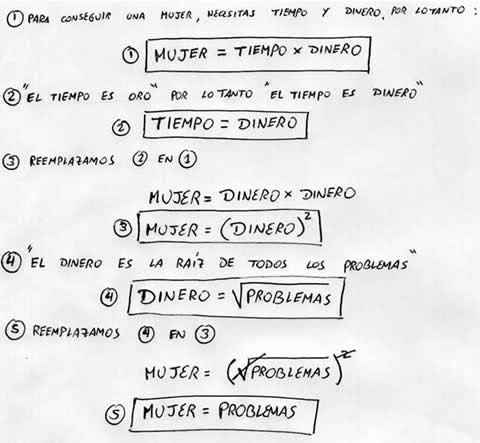 ① PARA CONSEGUIR UNA MUJER, NECESITAS TIEMPO Y DINERO, POR LO TANTO:
① MUJER = TIEMPO × DINERO
② "EL TIEMPO ES ORO" POR LO TANTO "EL TIEMPO ES DINERO"
② TIEMPO = DINERO
③ REEMPLAZAMOS ② EN ①
MUJER = DINERO × DINERO
③ MUJER = (DINERO)²
④ "EL DINERO ES LA RAÍZ DE TODOS LOS PROBLEMAS"
④ DINERO = √PROBLEMAS
⑤ REEMPLAZAMOS ④ EN ③
MUJER = (√PROBLEMAS)²
⑤ MUJER = PROBLEMAS